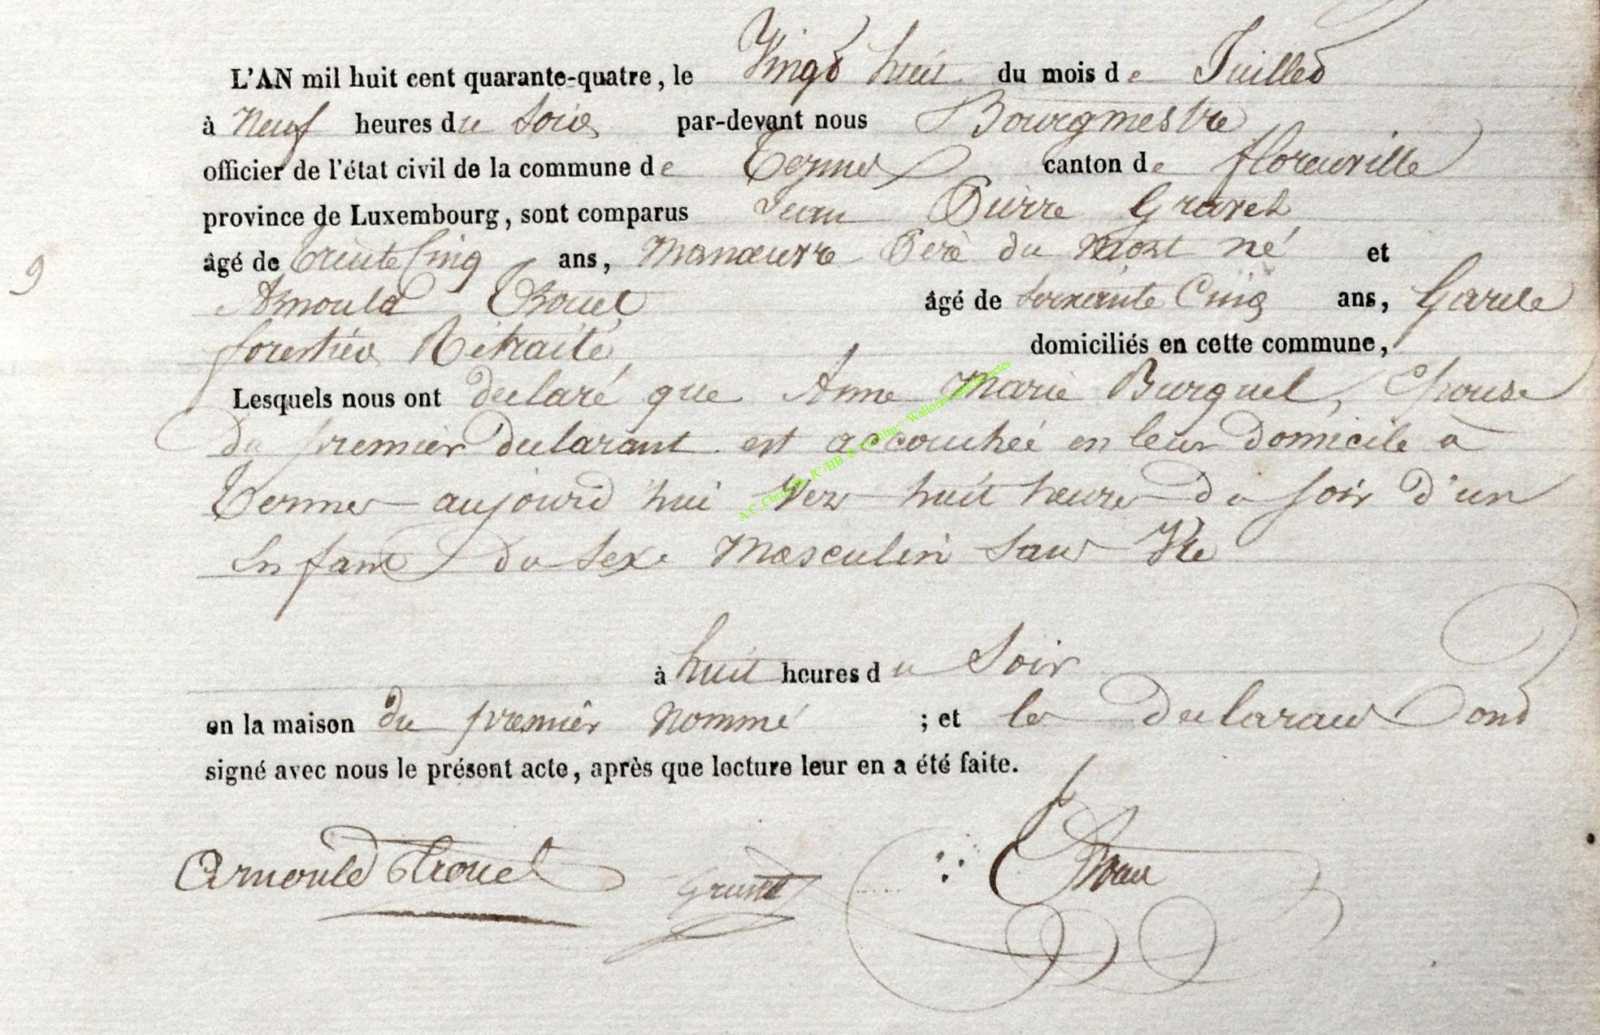 L'AN mil huit cent quarante-quatre, le Vingt huit du mois de Juillet
à Neuf heures du Soir par-devant nous Bourgmestre
officier de l'état civil de la commune de Termes canton de florenville
province de Luxembourg, sont comparus Jean Pierre Gravet
âgé de trente Cinq ans, Manœuvre Père du Mort né et
9
Arnould Trouet âgé de soixante Cinq ans, Garde
forestier Retraité domiciliés en cette commune,
Lesquels nous ont declaré que Anne Marie Burquel, Epouse
du premier declarant est accouchée en leur domicile a
Termes aujourd'hui Vers huit heures du soir d'un
Enfant du Sexe Masculin Sans Vie
à huit heures du Soir
en la maison du premier Nommé ; et les declarans ont
signé avec nous le présent acte, après que lecture leur en a été faite.
Arnould Trouet